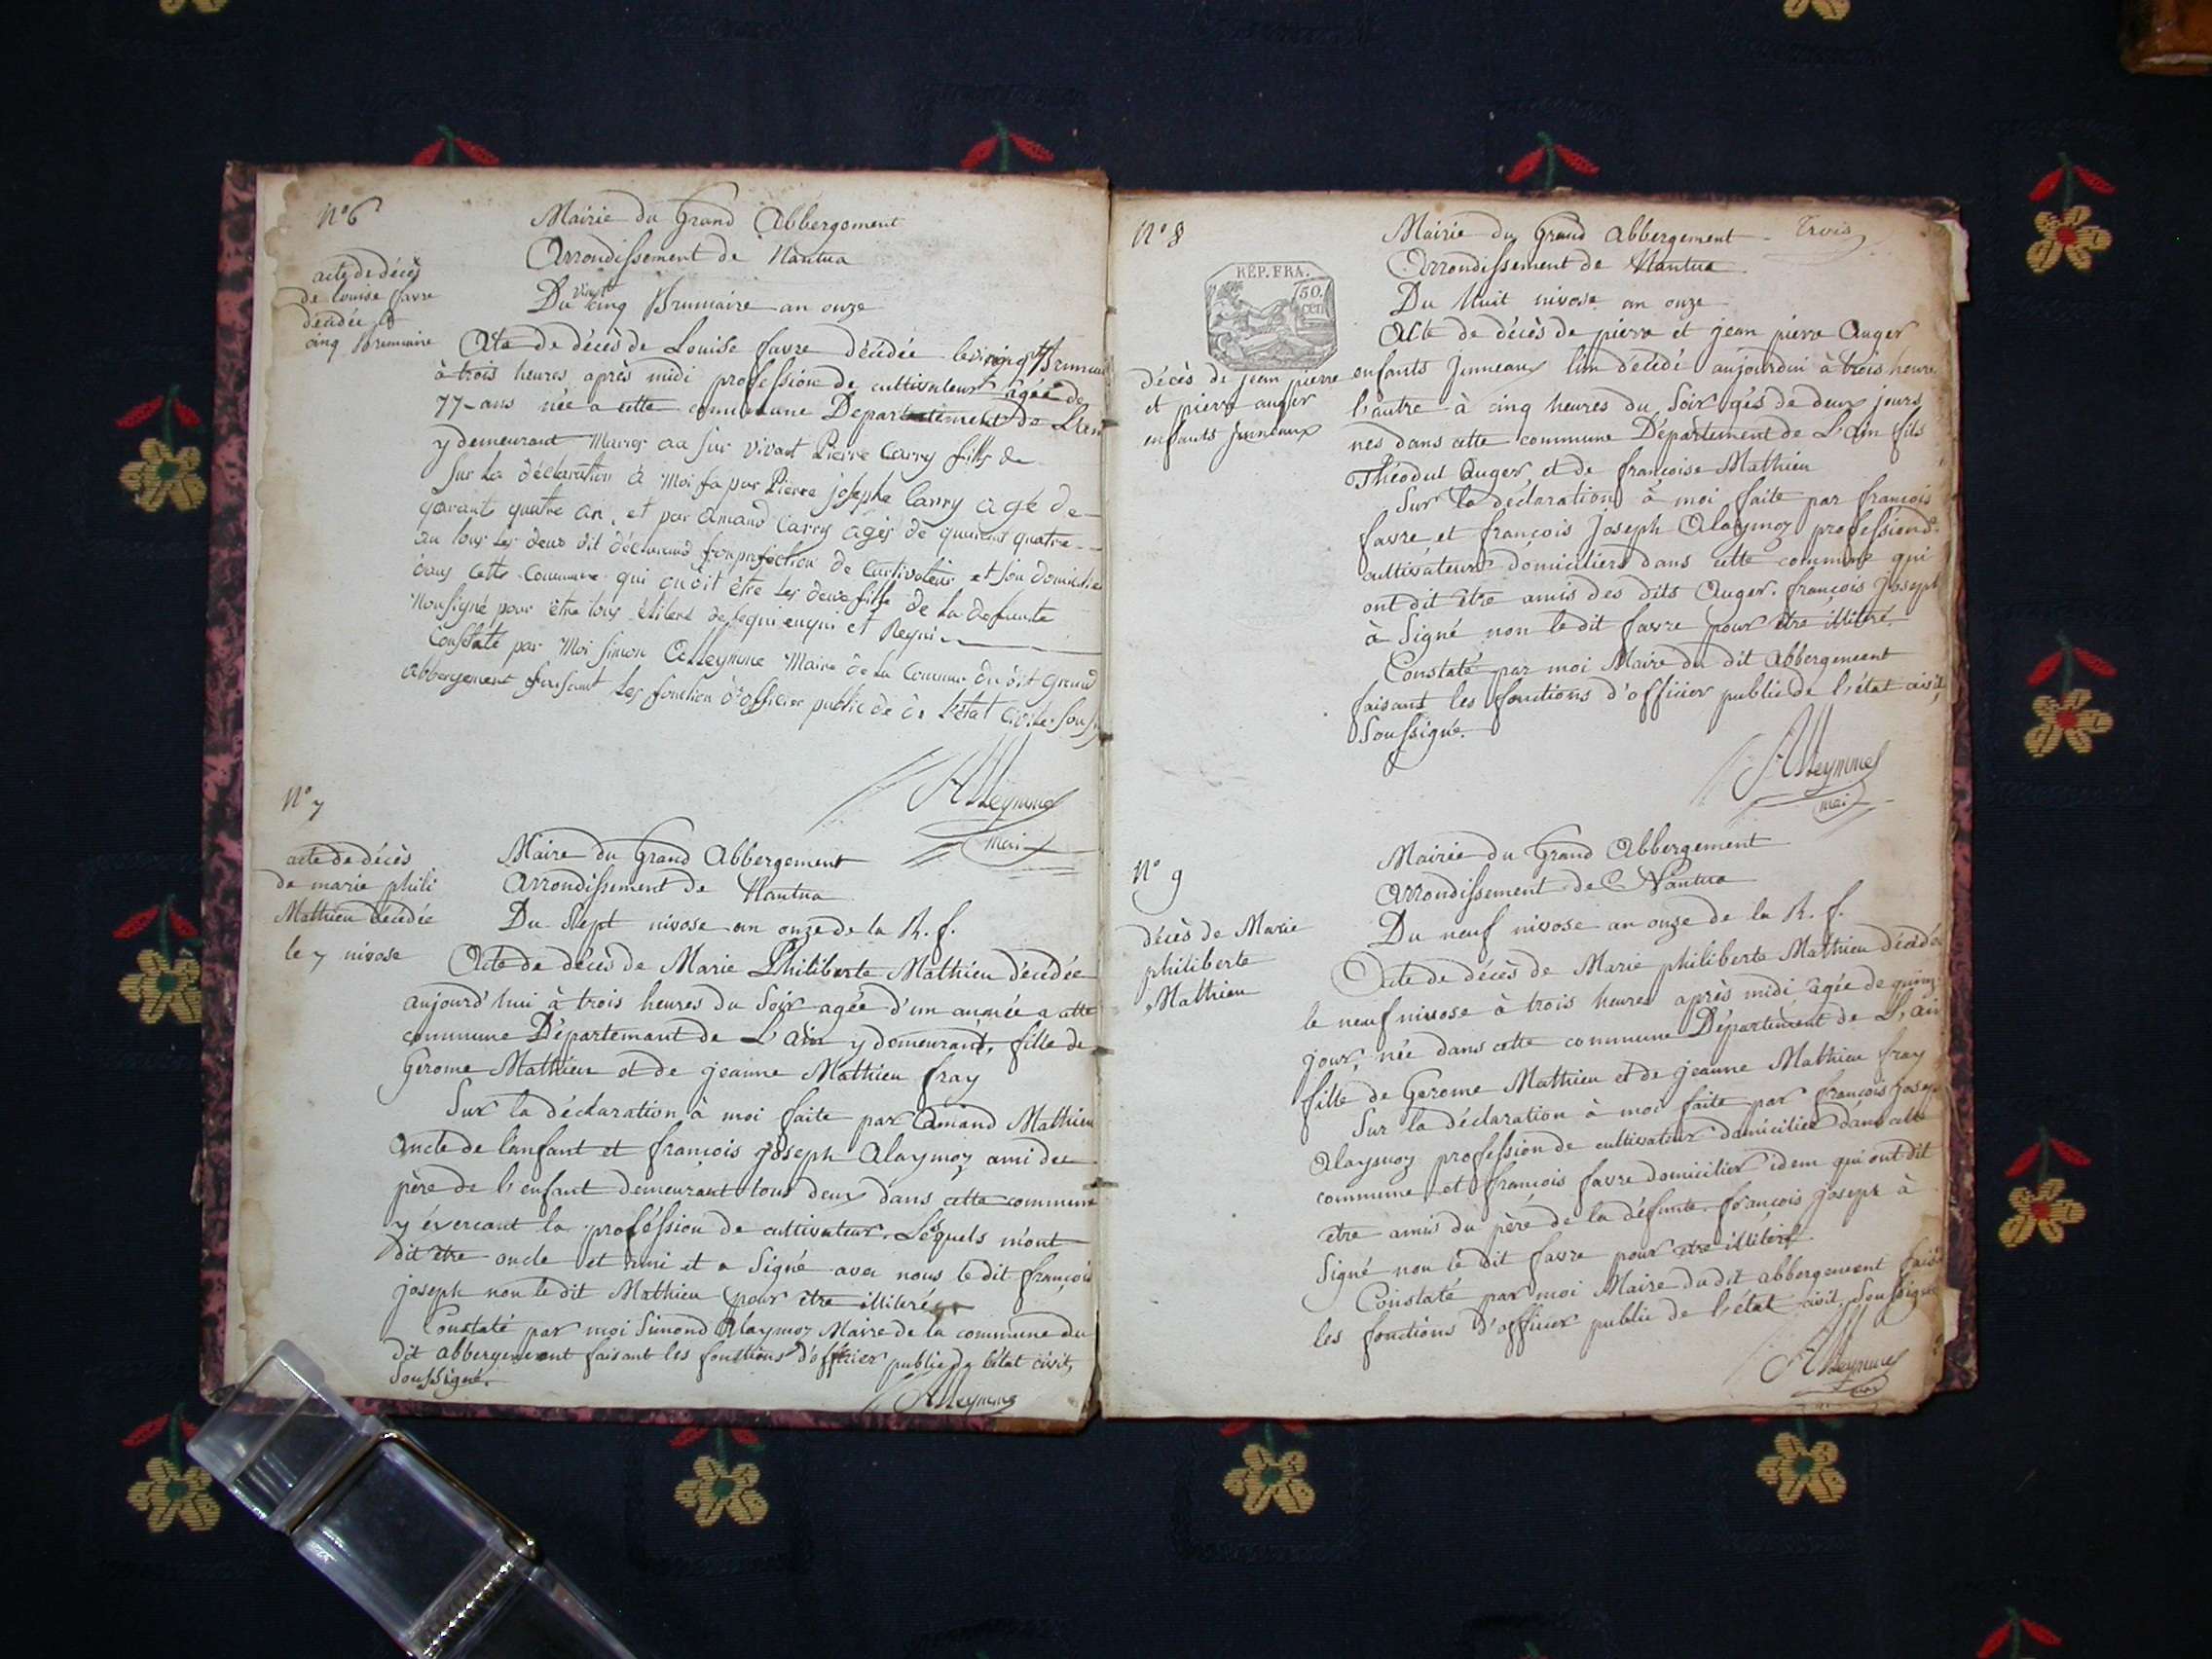 N° 6
Mairie du Grand Abbergement
Arrondissement de Nantua
Du vingt cinq Brumaire an onze
acte de décès
de Louise favre
décédée le
cinq brumaire
Acte de décès de Louise favre décédée le
à trois heures après midi profession de cultivateur agée de
77 ans née a cette commune Departement de L'ain
y demeurant Pierre Carry
Sur La déclaration à moi fa par Pierre josephe Carry agé de
quatre an, et par Amand Carry agés de quatre
dans cette Commune qui de La defunte
Constaté par Moi Simon Alleymme Maire de La Commune du dit Grand
abbergement faisant Les fonction d'officier public de L'état
Alleymme
mai
N° 7
acte de décès
de marie phili
Mathieu décédée
le 7 nivose
Maire du Grand Abbergement
Arrondissement de Nantua
Du Sept nivose an onze de la R. f.
Acte de décès de Marie Philiberte Mathieu décédée
aujourd'hui à trois heures du Soir agée d'un année a cette
commune Département de L'ain y demeurant, fille de
Gerome Mathieu et de jeanne Mathieu fray
Sur la déclaration à moi faite par Amand Mathieu
oncle de l'enfant et françois joseph Alaymoz ami des
père de l'enfant demeurant tous deux dans cette commune
y éxercant la proféssion de cultivateur. Lesquels m'ont
dit être oncle et ami et a Signé avec nous le dit françois
joseph non le dit Mathieu pour être illiteré
Constaté par moi Simond Alaymoz Maire de la commune du
dit abbergement faisant les fonctions d'officier public de l'état civil,
Soussigné.
Alleymme
N° 8
Mairie du Grand Abbergement
Trois
Arrondissement de Nantua
Du huit nivose an onze
REP. FRA.
50.
cen
décès de jean pierre
et pierre auger
enfants jumeaux
Acte de décès de pierre et jean pierre Auger
enfants jumeaux l'un décédé aujourdui à trois heure
l'autre à cinq heures du Soir gés de deux jours
nes dans cette commune Département de L'ain fils
Théodul Auger et de françoise Mathieu
Sur la déclaration à moi faite par françois
favre et françois joseph Alaymoz profession de
cultivateurs domiciliers dans cette commune qui
ont dit être amis des dits Auger. françois joseph
à Signé non le dit favre pour être illiteré.
Constaté par moi Maire du dit Abbergement
faisant les fonctions d'officier public de l'état civil,
Soussigné.
Alleymme
mai
N° 9
décès de Marie
philiberte
Mathieu
Mairie du Grand Abbergement
Arrondissement de Nantua
Du neuf nivose an onze de la R. f.
Acte de décès de Marie philiberte Mathieu décédée
le neuf nivose à trois heures après midi agée de quinze
jour, née dans cette commune Département de L'ain
fille de Gerome Mathieu et de jeanne Mathieu fray
Sur la déclaration à moi faite par françois joseph
Alaymoz profession de cultivateur domicilier dans cette
commune et francois favre domicilier idem qui ont dit
etre amis du père de la défunte. françois joseph à
Signé non le dit favre pour etre illiteré
Constaté par moi Maire du dit abbergement faisa
les fonctions d'officier public de l'état civil. Soussigné
Alleymme